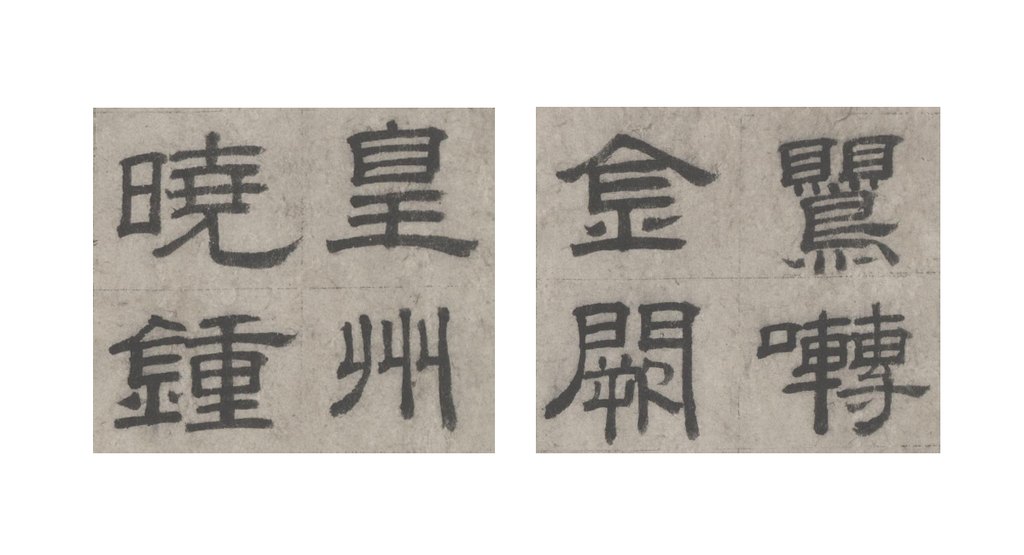 鸎囀
金闕
皇州
曉鍾